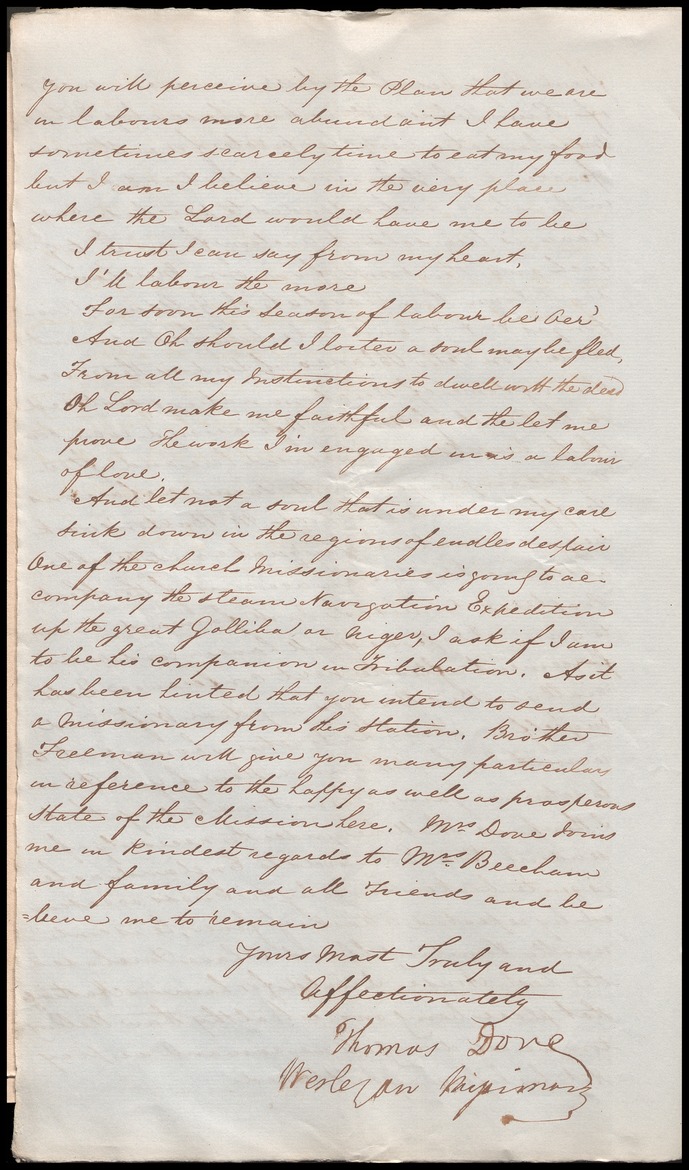 you will perceive by the Plan that we are
in labours more abundant I have
sometimes scarcely time to eat my food
but I am I believe in the very place
where the Lord would have me to be
I trust I can say from my heart,
I'll labour the more
For soon this season of labour be Oer'
And Oh should I loiter a soul may be fled,
From all my Instructions to dwell with the dead
Oh Lord make me faithful and the let me
prove The work I'm engaged in is a labour
of love.
And let not a soul that is under my care
sink down in the regions of endles despair
One of the church Missionaries is going to ac-
company the steam Navigation Expedition
up the great Jolliba or Niger, I ask if I am
to be his companion in Tribulation. As it
has been hinted that you intend to send
a Missionary from this Station. Brother
Freeman will give you many particulars
in reference to the happy as well as prosperous
State of the Mission here. Mrs Dove Joins
me in kindest regards to Mrs Beecham
and family and all Friends and be
=lieve me to remain
Yours Most Truly and
Affectionately
Thomas Dove
Wesleyan Missionary